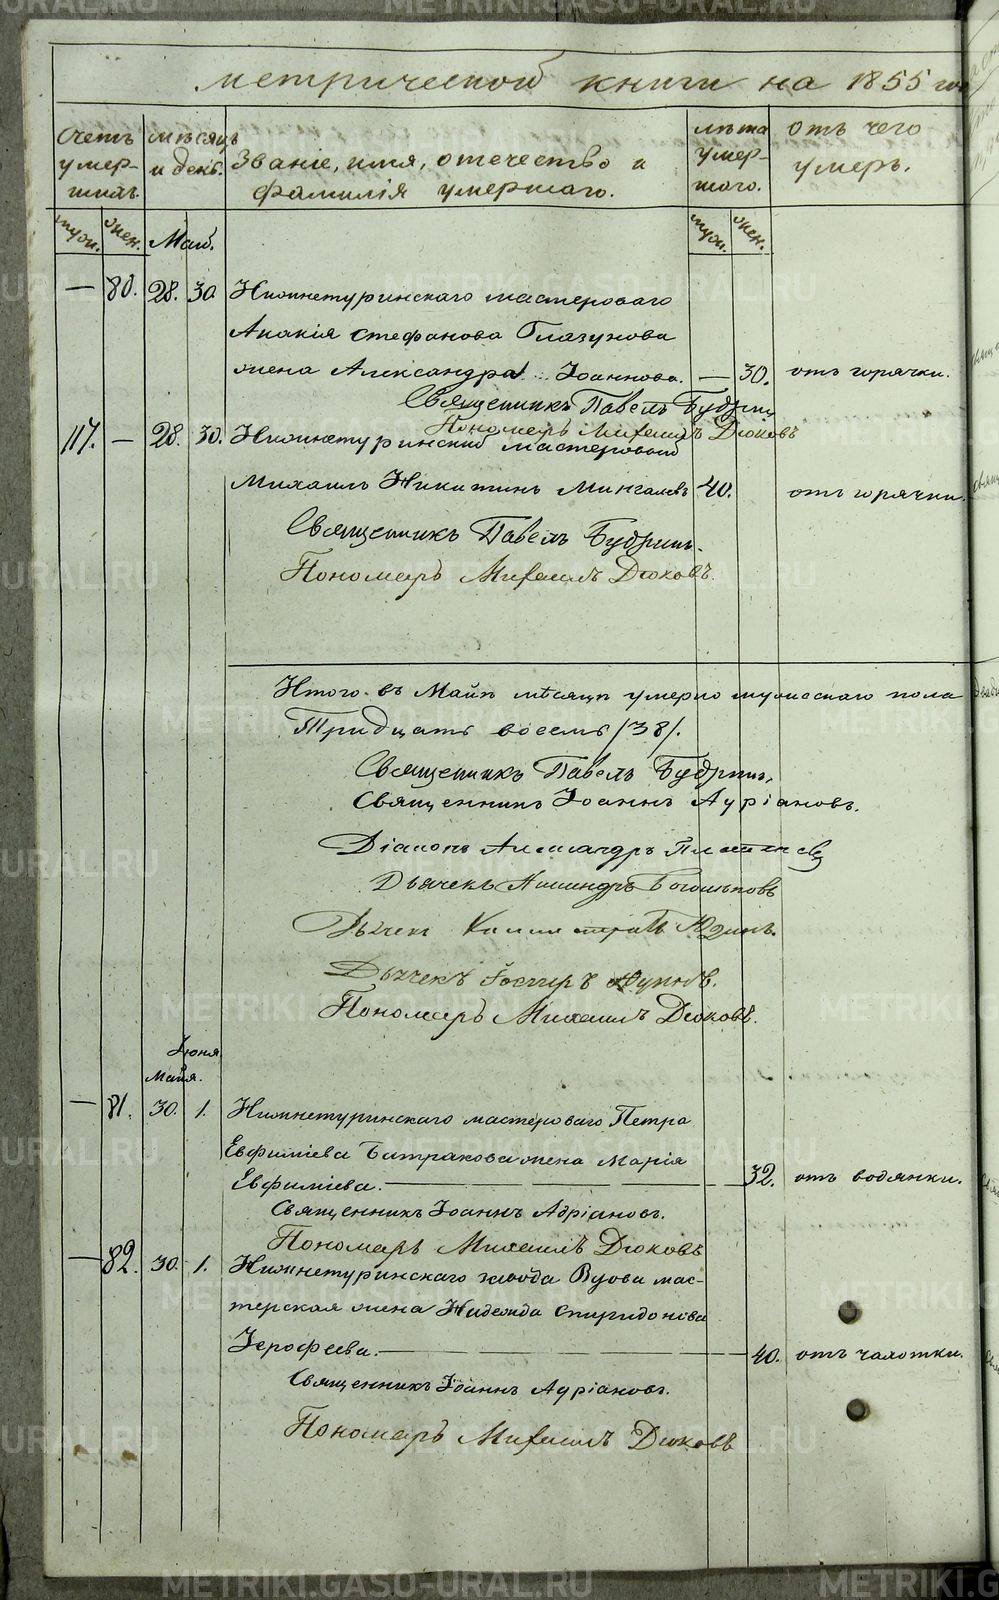 метрической книги на 1855 го
Счетъ умер-шихъ.
мѣсяцъ и день.
Званіе, имя, отечество и фамилія умершаго.
лѣта умер-шаго.
отъ чего умеръ.
муж. жен. Маія. муж. жен.
— 80. 28. 30. Нижнетуринскаго мастероваго
Акакія Стефанова Глазунова
жена Александра Іоаннова. — 30. отъ горячки.
Священникъ Павелъ Будрин
Пономарь Михаилъ Дюковъ
117. — 28. 30. Нижнетуринскій мастеровой
Михаилъ Никитинъ Мингалевъ 40. отъ горячки.
Священникъ Павелъ Будринъ.
Пономарь Михаилъ Дюковъ.
Итого въ Маіѣ мѣсяцѣ умерло мужескаго пола
Тридцать восемь /38/.
Священникъ Павелъ Будринъ,
Священникъ Іоаннъ Адріановъ.
Діаконъ Александръ
Дьячекъ
Дьячекъ Юдинъ.
Дьячекъ
Пономарь Михаилъ Дюковъ.
Іюня
Маія.
— 81. 30. 1. Нижнетуринскаго мастероваго Петра
Евфиміева Батракова жена Марія
Евфиміева. — 32. отъ водянки.
Священникъ Іоаннъ Адріановъ.
Пономарь Михаилъ Дюковъ
— 82. 30. 1. Нижнетуринскаго завода Вдова мас-
терская жена Надежда Спиридонова
Іерофеева. — 40. отъ чахотки.
Священникъ Іоаннъ Адріановъ.
Пономарь Михаилъ Дюковъ
METRIKI.GASO-URAL.RU